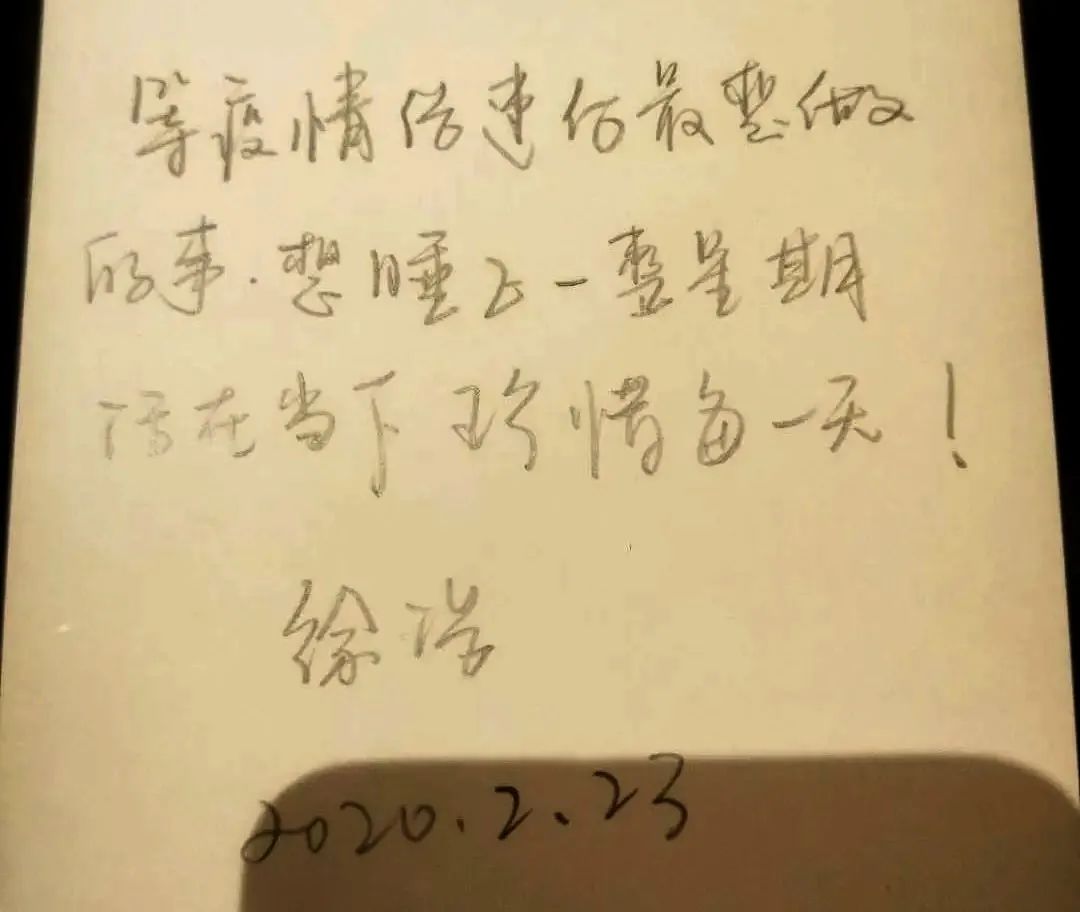 等疫情结束后最想做
的事.想睡上一整星期
活在当下 珍惜每一天!
徐浩
2020.2.23